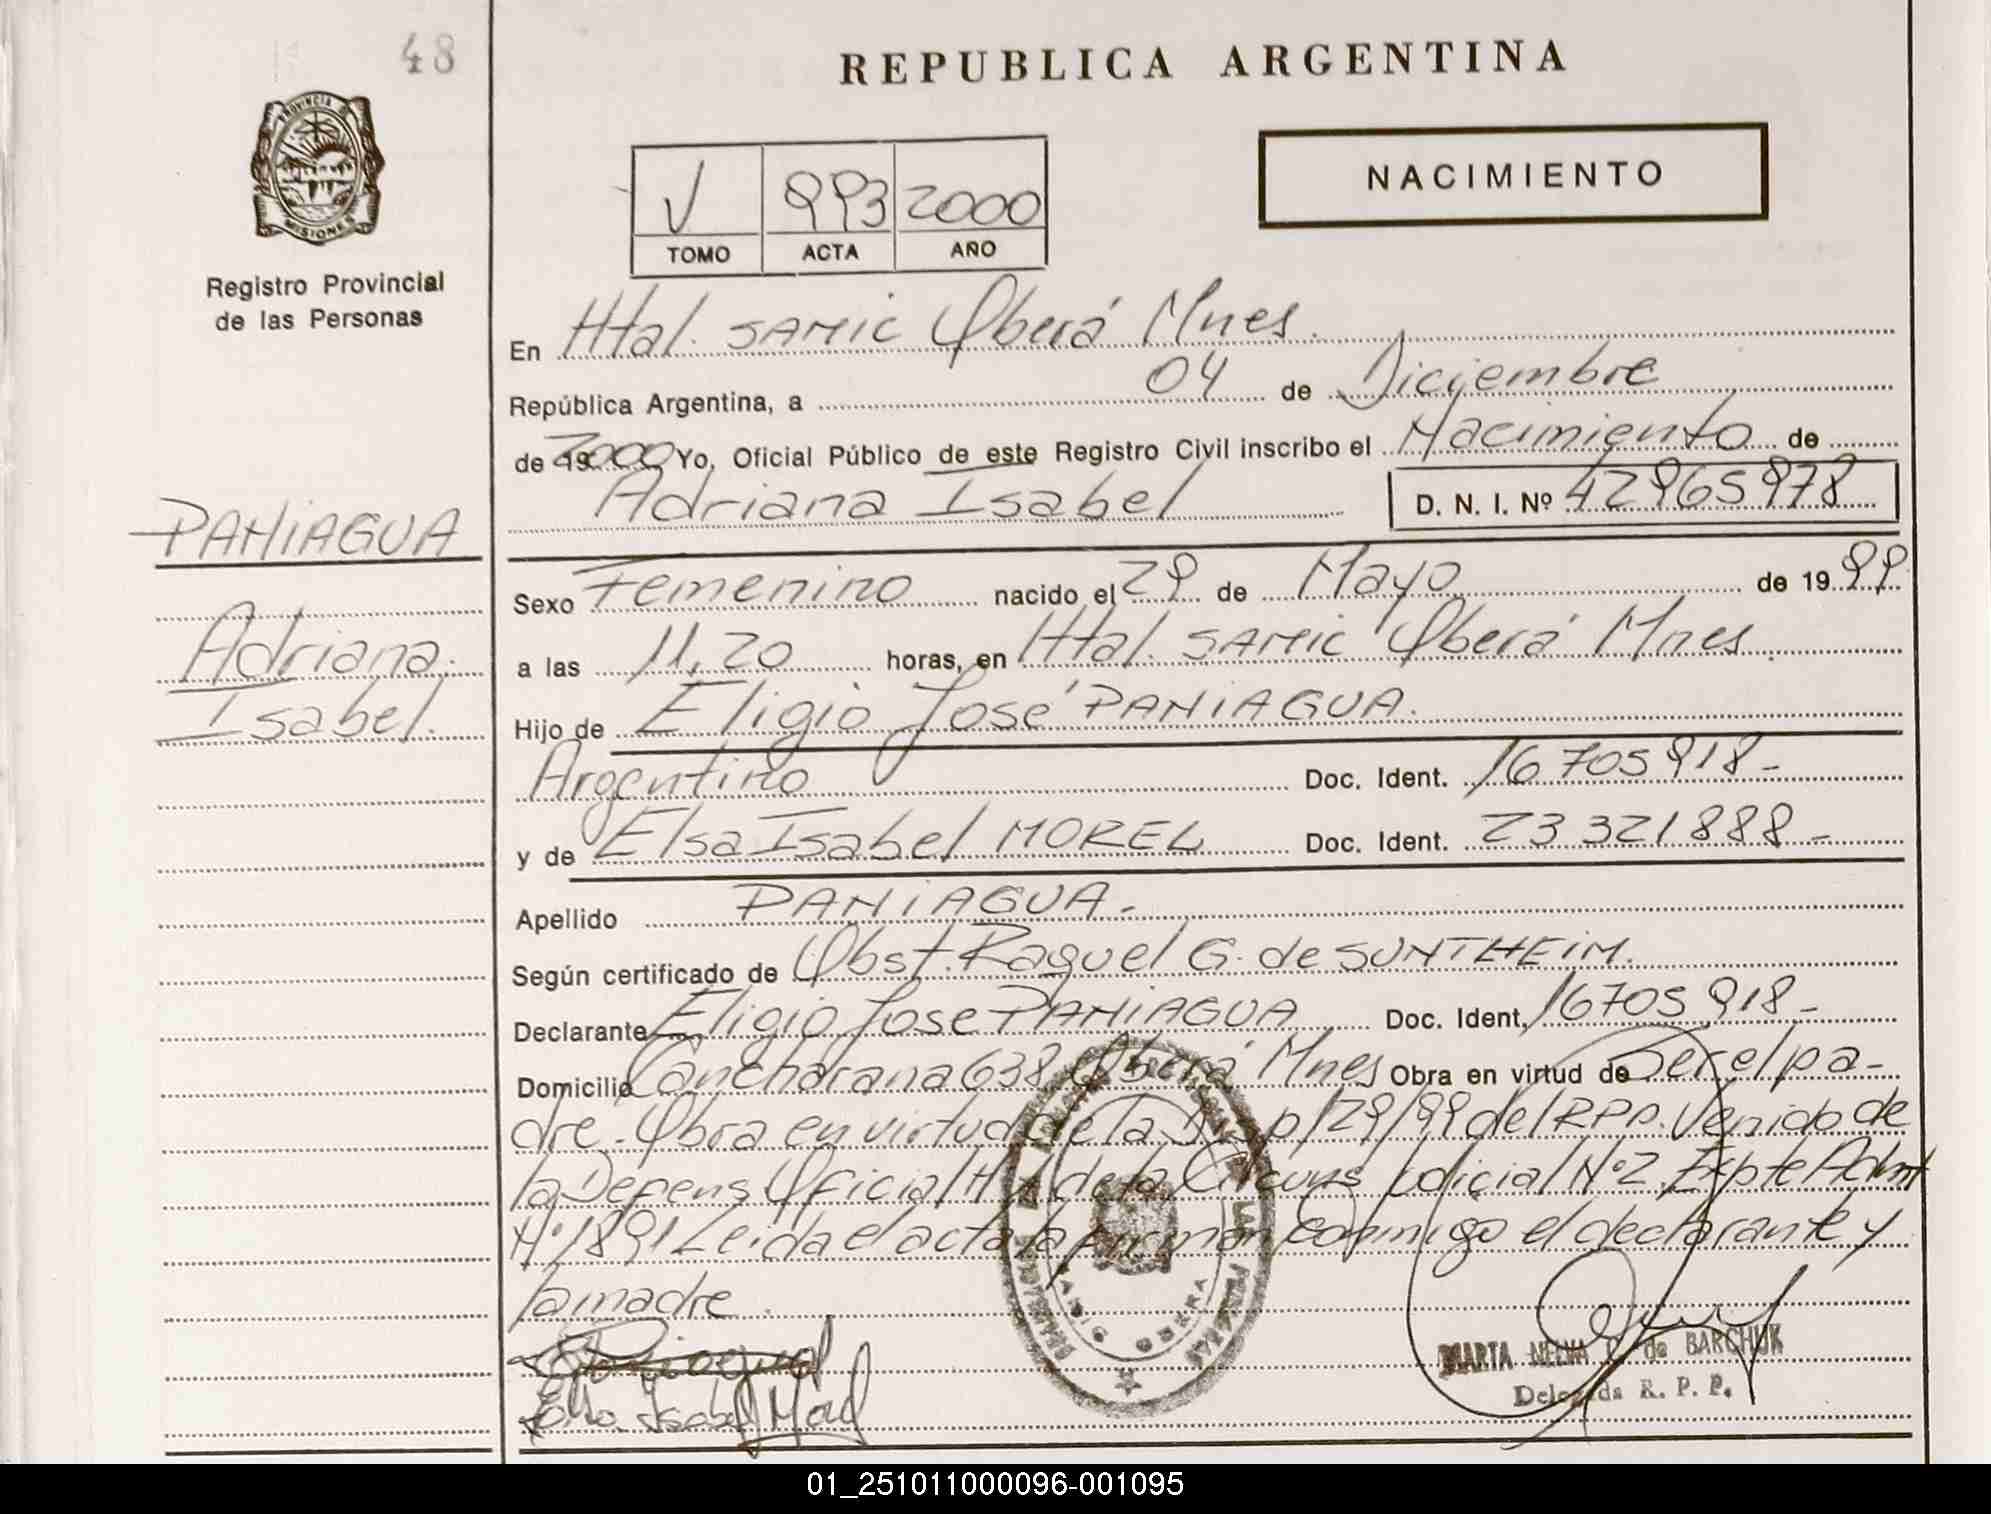 48
REPUBLICA ARGENTINA
PROVINCIA DE MISIONES
Registro Provincial
de las Personas
V 993 2000
TOMO ACTA AÑO
NACIMIENTO
En Htal. SAMIC Oberá Mnes.
República Argentina, a 04 de Diciembre
de 19 2000 Yo, Oficial Público de este Registro Civil inscribo el Nacimiento de
Adriana Isabel D. N. I. Nº 42965978
PANIAGUA
Adriana
Isabel.
Sexo Femenino nacido el 29 de Mayo de 1999
a las 11,20 horas, en Htal. SAMIC Oberá Mnes.
Hijo de Eligio José PANIAGUA.
Argentino Doc. Ident. 16705918-
y de Elsa Isabel MOREL Doc. Ident. 23321888-
Apellido PANIAGUA.
Según certificado de Obst. Raquel G. de SUNTHEIM.
Declarante Eligio Jose PANIAGUA Doc. Ident. 16705918-
Domicilio Cancharana 638 Oberá Mnes Obra en virtud de Ser el pa-
dre. Obra en virtud de la Disp/29/99 del RPP. Venido de
la Defens Oficial de la Circuns Judicial Nº2. Expte Admt
Nº 1891 Leida el acta la firman conmigo el declarante y
la madre.
Elsa Isabel Morel
MARTA NELVA de BARCHUK
Delegada R. P. P.
01_251011000096-001095